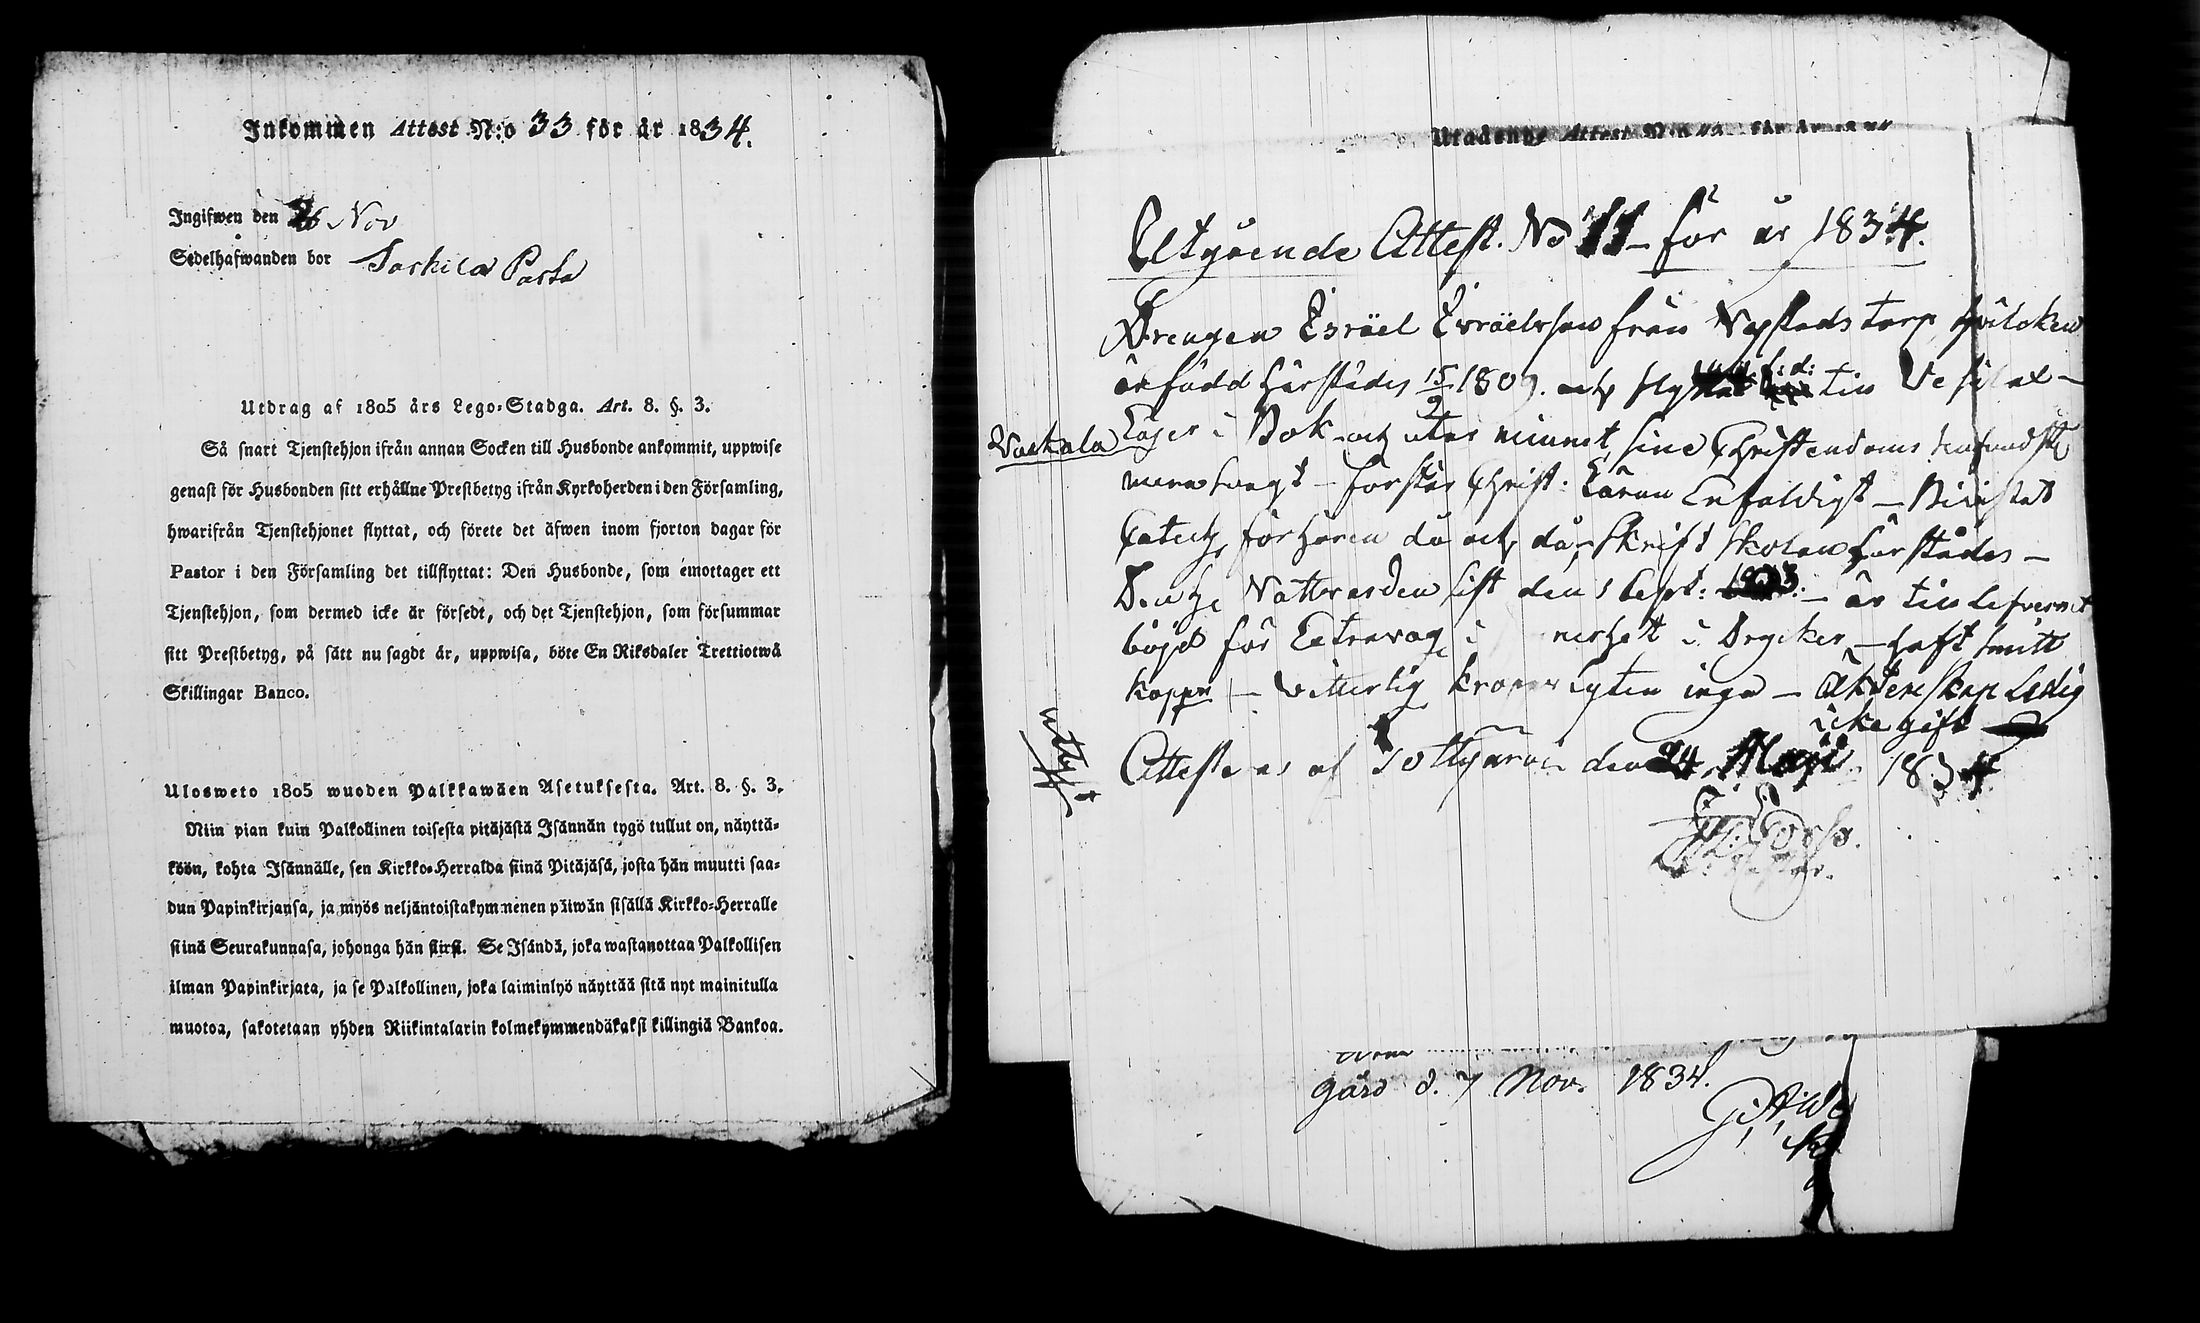 Inkommen Attest N:o 33 för år 1834.
Ingifwen den 26 Nov
Sedelhafwanden bor Sorkila Pasta
Utdrag af 1805 års Lego-Stadga. Art. 8. §. 3.
Så snart Tjenstehjon ifrån annan Socken till Husbonde ankommit, uppwise
genast för Husbonden sitt erhållne Prestbetyg ifrån Kyrkoherden i den Församling,
hwarifrån Tjenstehjonet flyttat, och förete det äfwen inom fjorton dagar för
Pastor i den Församling det tillflyttat: Den Husbonde, som emottager ett
Tjenstehjon, som dermed icke är försedt, och det Tjenstehjon, som försummar
sitt Prestbetyg, på sätt nu sagdt är, uppwisa, böte En Riksdaler Trettiotwå
Skillingar Banco.
Ulosweto 1805 wuoden Palkkawäen Asetuksesta. Art. 8. §. 3.
Niin pian kuin Palkollinen toisesta pitäjästä Isännän tygö tullut on, näyttä-
köön, kohta Isännälle, sen Kirkko-Herralda siinä Pitäjäsä, josta hän muutti saa-
dun Papinkirjansa, ja myös neljäntoistakymmenen päiwän sisällä Kirkko-Herralle
siinä Seurakunnasa, johonga hän siirsi. Se Isändä, joka wastanottaa Palkollisen
ilman Papinkirjata, ja se Palkollinen, joka laiminlyö näyttää sitä nyt mainitulla
muotoa, sakotetaan yhden Riikintalarin kolmekymmendäkaksi killingiä Bankoa.
Utgående Attest N:o för år
Utgående Attest. No 11 – för år 1834.
Drengen Esräel Esräelsson från Nystads torp, hvilcken
är född härstädes 15/9 1809. och flyttat till Vesilax –
Läser i Bok och utur minnet sine Christendoms
– förstår Christ: Läran Enfaldigt – Bivistat
Catech förhören då och då, – Skrift skolan härstädes –
D. H. Nattvarden sist den 1 Sept: – är till lefvernet
böjd för i Drycker – haft
koppor – Vitterlig inga – Äktenskap Ledig
icke gift
Attesteras af Tottijärvi den 24 Maji 1834
gård d. 7 Nov. 1834.